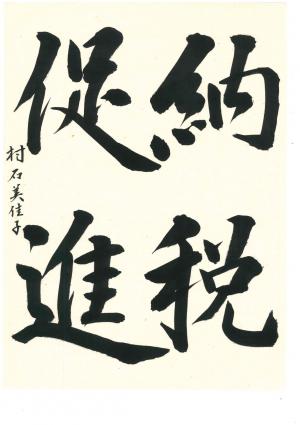 納税
促進
村石美佳子